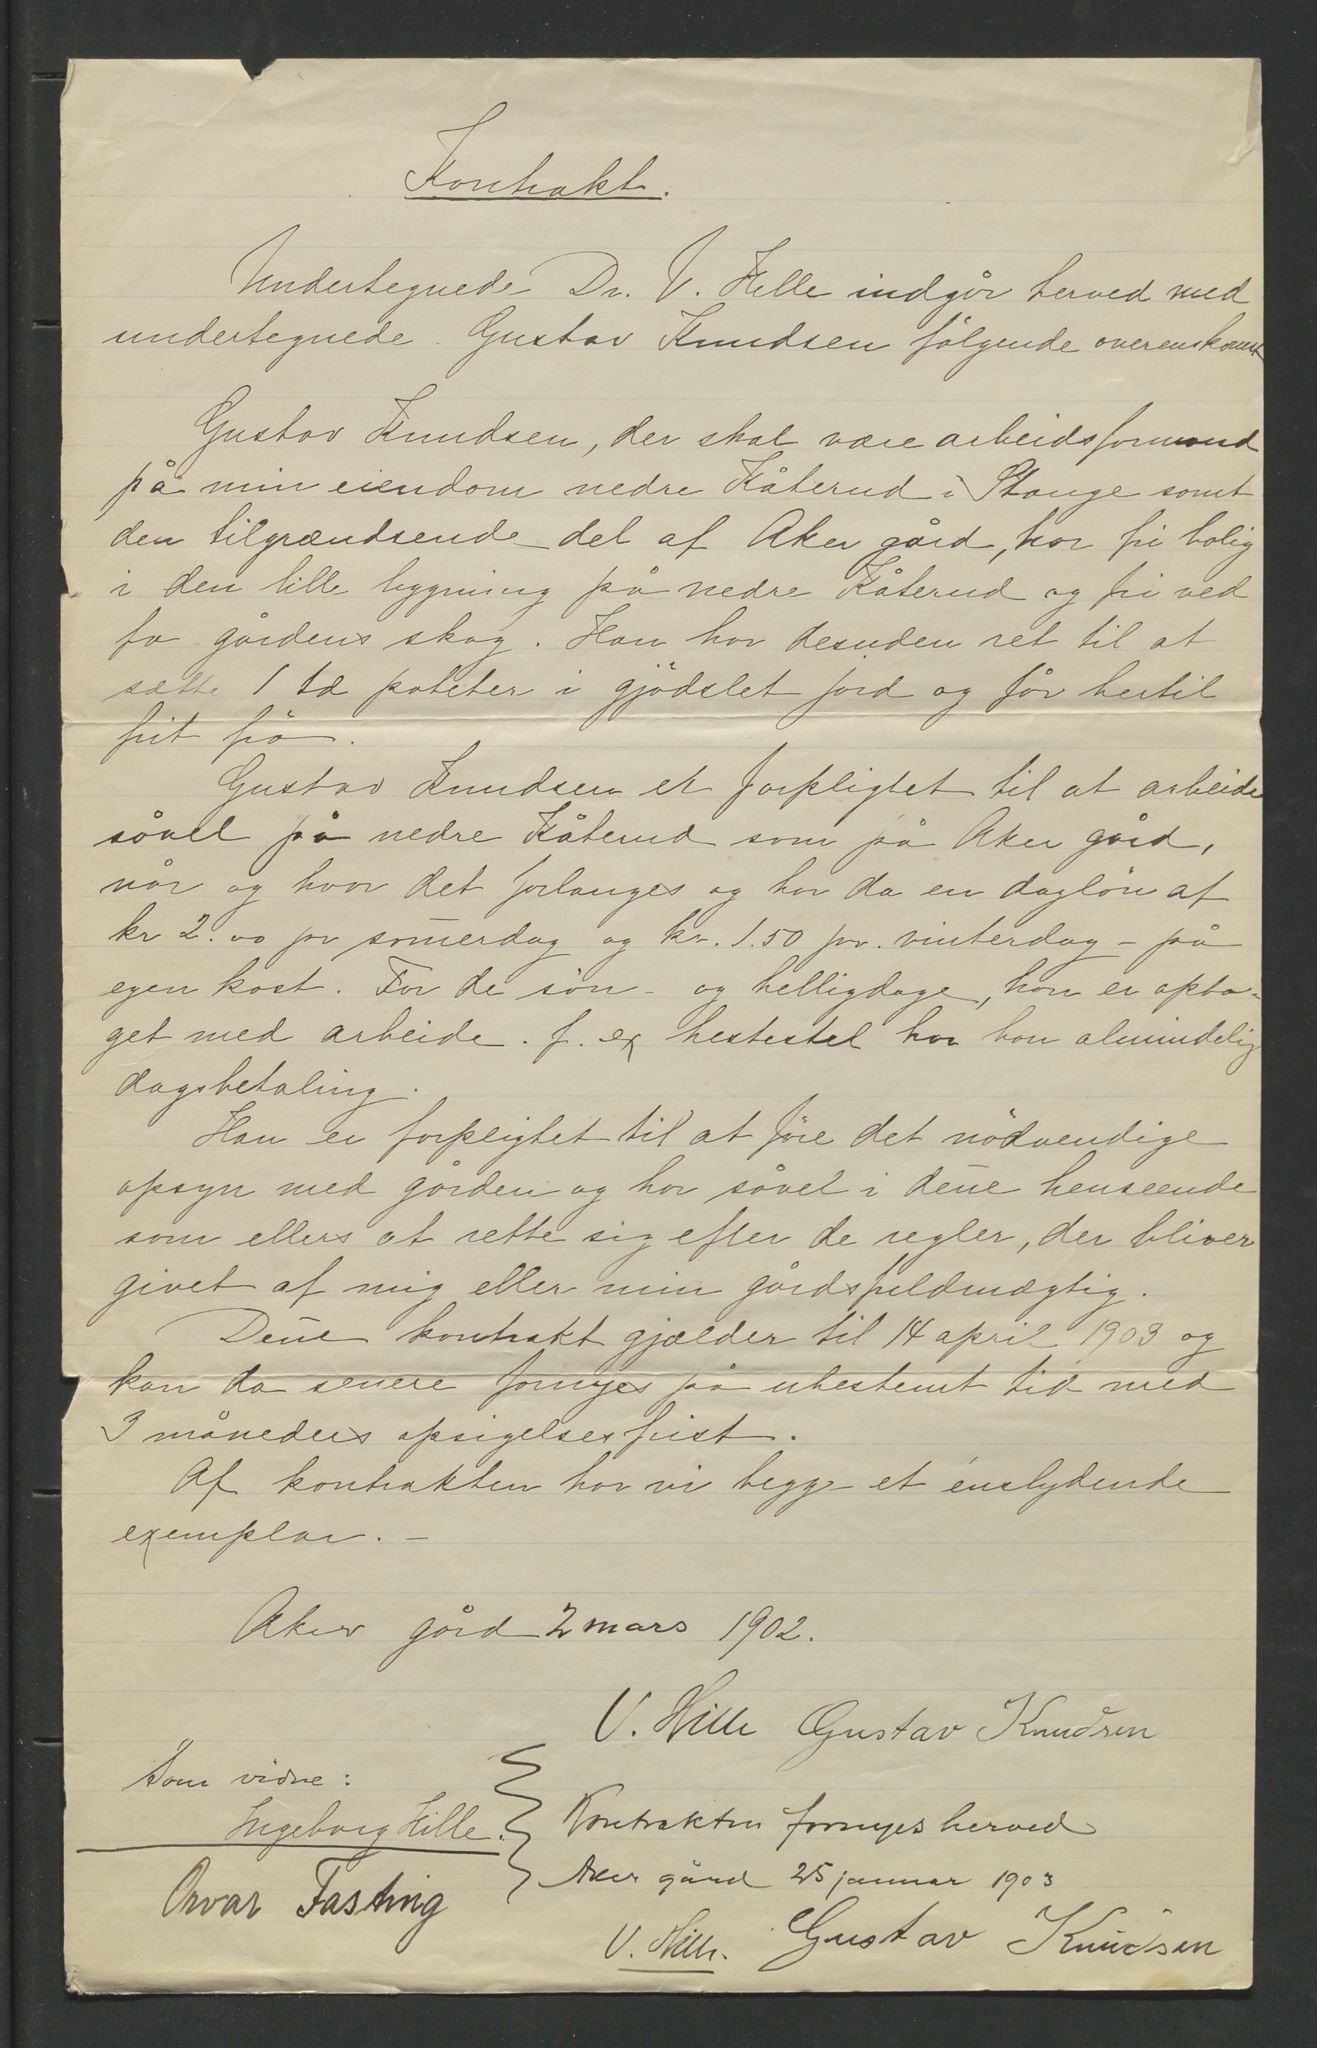 Kontrakt.
Undertegnede Dr. V. Hille indgår herved med
undertegnede Gustav Knudsen følgende overenskomst
Gustav Knudsen, der skal være arbeidsformand
på min eiendom nedre Kåterud i Stange samt
den tilgrændsende del af Aker gård, har fri bolig
i den lille bygning på nedre Kåterud og fri ved
fra gårdens skog. Han har desuden ret til at
sætte 1 td poteter i gjødslet jord og får hertil
frit frø.
Gustav Knudsen er forpligtet til at arbeide
såvel på nedre Kåterud som på Aker gård,
når og hvor det forlanges og har da en dagløn af
kr 2.00 pr som̄erdag og kr. 1.50 pr. vinterdag - på
egen kost. For de søn- og helligdage, han er opta-
get med arbeide f. ex hestestel har han almindelig
dagsbetaling.
Han er forpligtet til at føre det nødvendige
opsyn med gården og har såvel i den̄e henseende
som ellers at rette sig efter de regler, der bliver
givet af mig eller min gårdsfuldmægtig.
Den̄e kontrakt gjælder til 14 april 1903 og
kan da senere fornyes på ubestemt tid med
3 måneders opsigelsesfrist.
Af kontrakten har vi begge et énslydende
exemplar. -
Aker gård 2 mars 1902.
V. Hille Gustav Knudsen
Som vidne:
Ingeborg Hille.
Orvar Fasting
Kontrakten fornyes herved
Aker gård 25 januar 1903
V. Hille. Gustav Knudsen